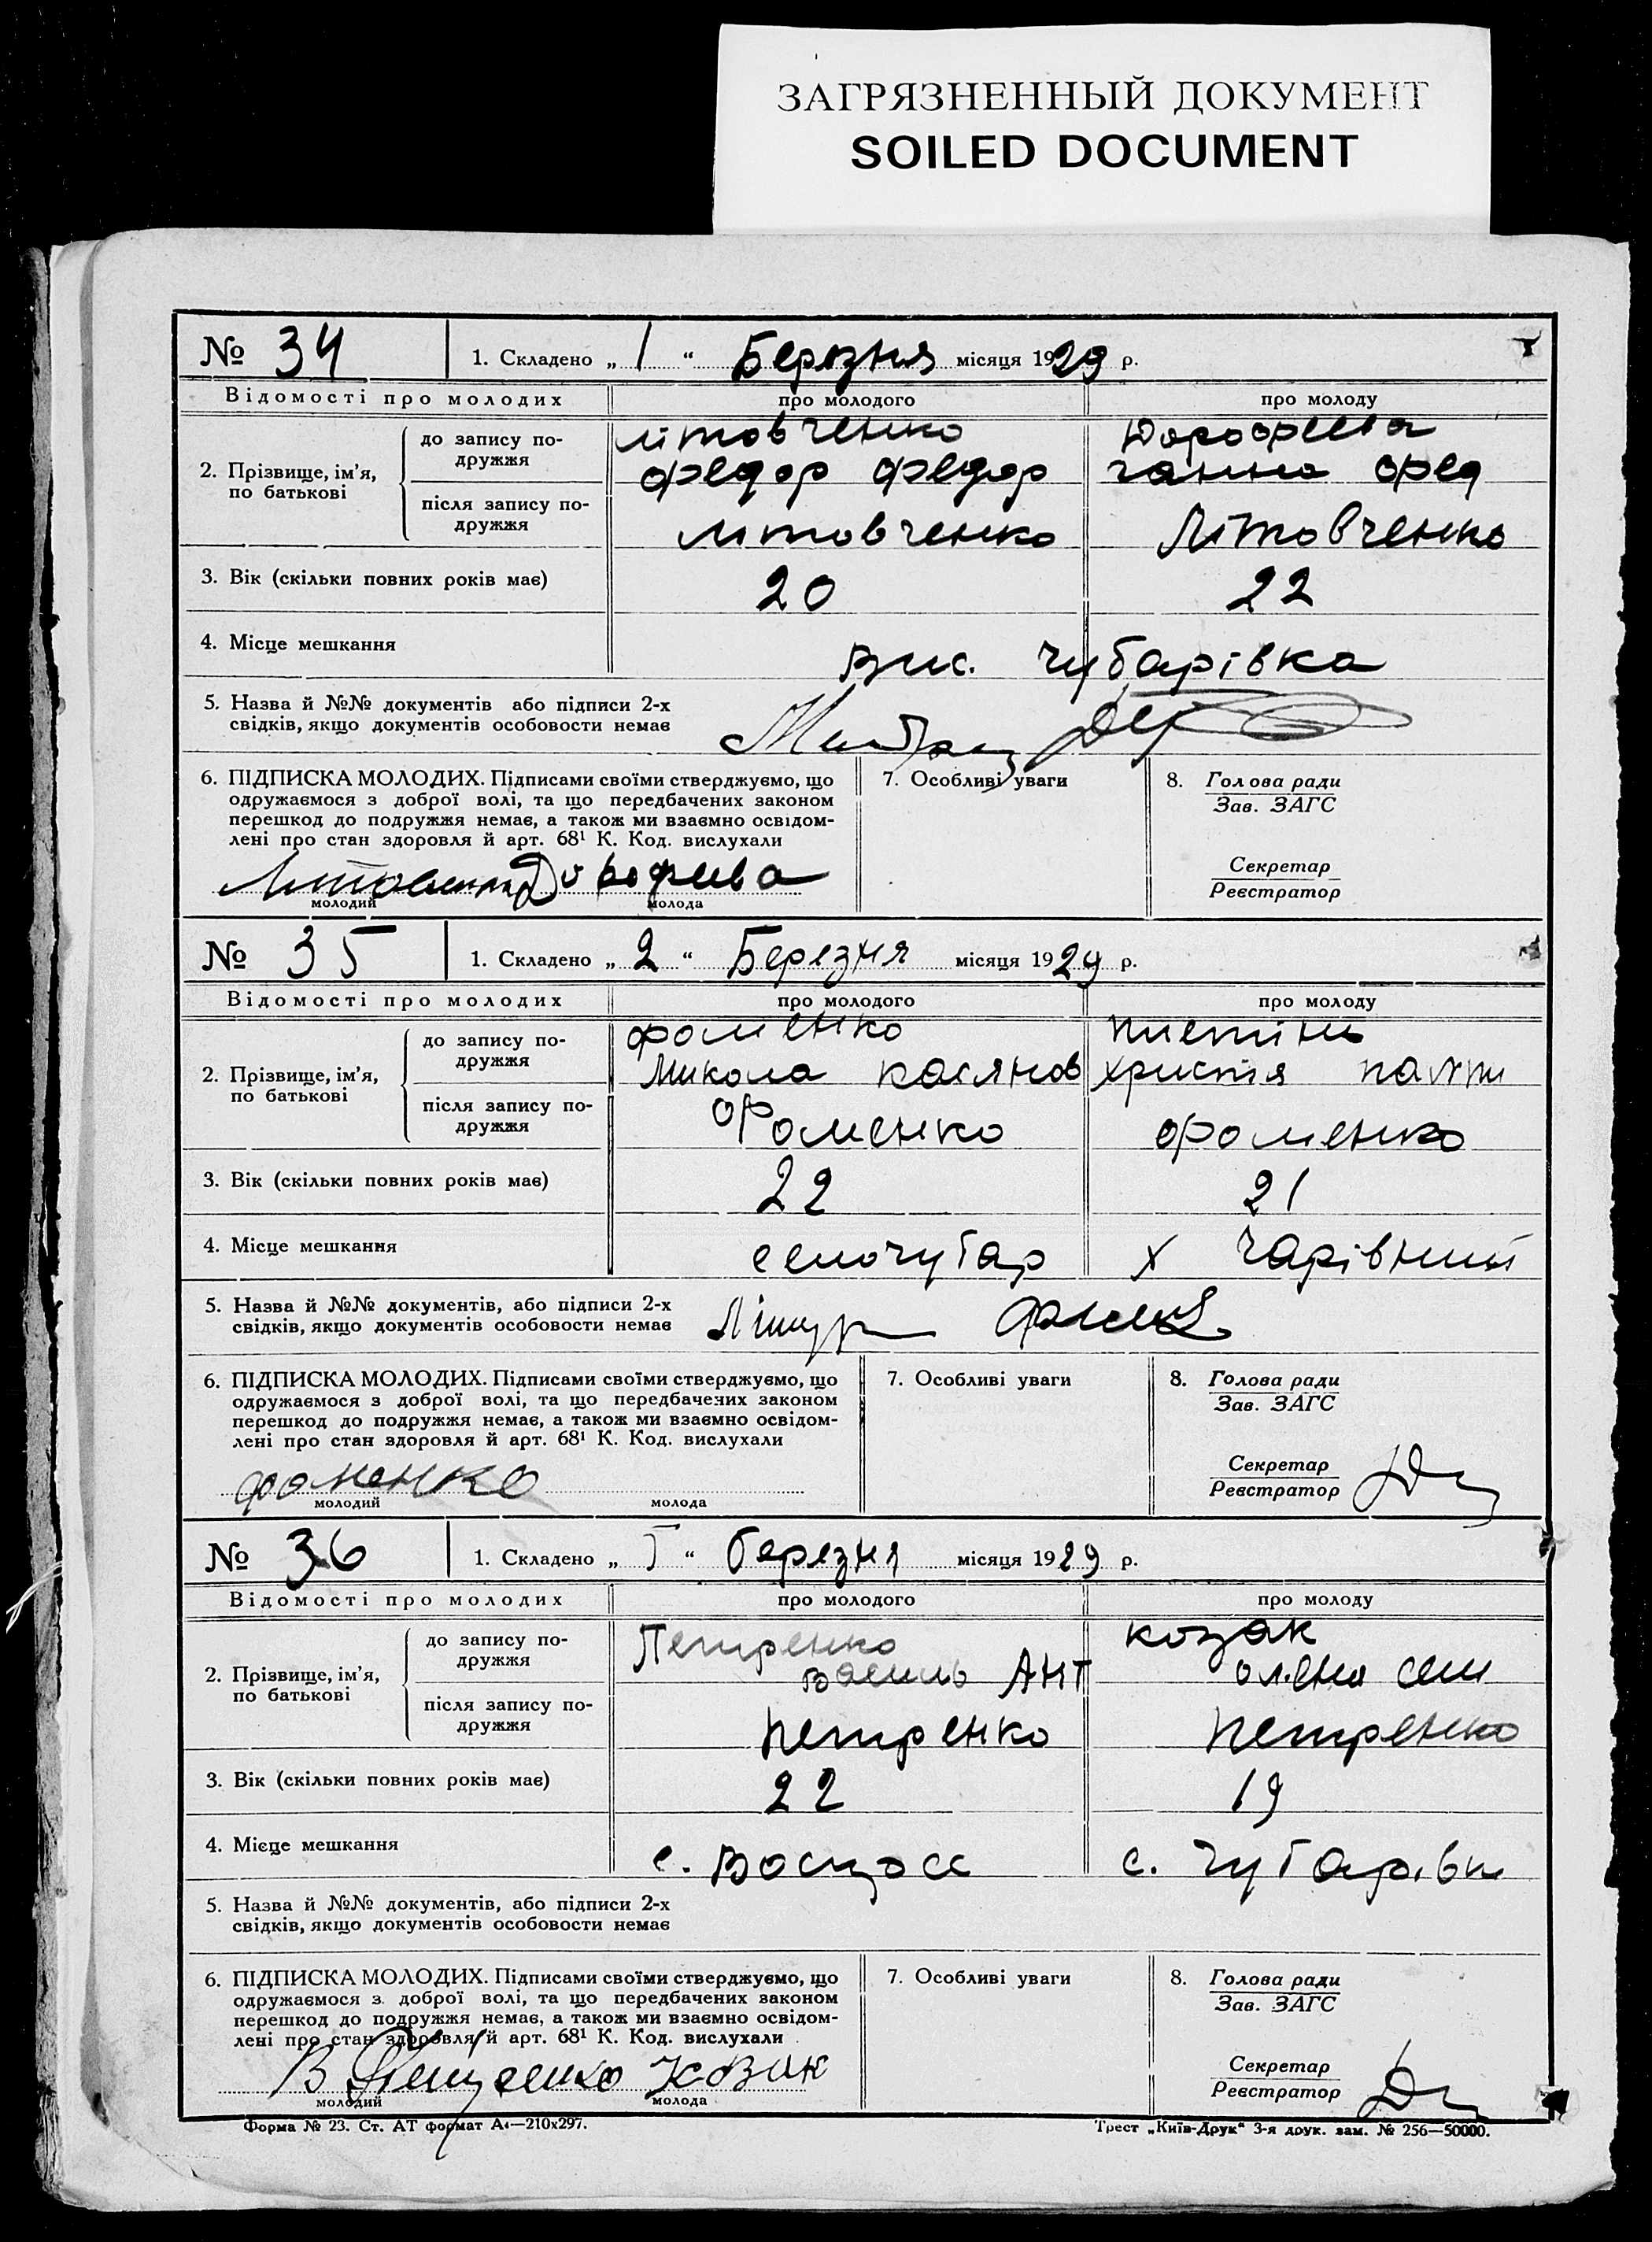 ЗАГРЯЗНЕННЫЙ ДОКУМЕНТ
SOILED DOCUMENT
№ 34 1. Складено „ 1 “ Березня місяця 1929 р.
Відомості про молодих про молодого про молоду
2. Прізвище, ім’я, по батькові
до запису подружжя
літовченко Дорофеева
федор федор ганна фед
після запису подружжя
літовченко Літовченко
3. Вік (скільки повних років має) 20 22
4. Місце мешкання Вис. Чубарівка
5. Назва й №№ документів або підписи 2-х
свідків, якщо документів особовости немає
6. ПІДПИСКА МОЛОДИХ. Підписами своїми стверджуємо, що
одружаємося з доброї волі, та що передбачених законом
перешкод до подружжя немає, а також ми взаємно освідом-
лені про стан здоровля й арт. 68¹ К. Код. вислухали
Дорофева
молодий молода
7. Особливі уваги
8. Голова ради
Зав. ЗАГС
Секретар
Реєстратор
№ 35 1. Складено „ 2 “ Березня місяця 1929 р.
Відомості про молодих про молодого про молоду
2. Прізвище, ім’я, по батькові
до запису подружжя
фоменко
Микола касянов христя
після запису подружжя
Фоменко фоменко
3. Вік (скільки повних років має) 22 21
4. Місце мешкання село чубар х Чарівний
5. Назва й №№ документів, або підписи 2-х
свідків, якщо документів особовости немає
6. ПІДПИСКА МОЛОДИХ. Підписами своїми стверджуємо, що
одружаємося з доброї волі, та що передбачених законом
перешкод до подружжя немає, а також ми взаємно освідом-
лені про стан здоровля й арт. 68¹ К. Код. вислухали
фоменко
молодий молода
7. Особливі уваги
8. Голова ради
Зав. ЗАГС
Секретар
Реєстратор
№ 36 1. Складено „ 5 “ березня місяця 1929 р.
Відомості про молодих про молодого про молоду
2. Прізвище, ім’я, по батькові
до запису подружжя
Петренко козак
Василь Ант олена сем
після запису подружжя
петренко петренко
3. Вік (скільки повних років має) 22 19
4. Місце мешкання с. с. Чубарівк
5. Назва й №№ документів, або підписи 2-х
свідків, якщо документів особовости немає
6. ПІДПИСКА МОЛОДИХ. Підписами своїми стверджуємо, що
одружаємося з доброї волі, та що передбачених законом
перешкод до подружжя немає, а також ми взаємно освідом-
лені про стан здоровля й арт. 68¹ К. Код. вислухали
В Петренко Козак
молодий молода
7. Особливі уваги
8. Голова ради
Зав. ЗАГС
Секретар
Реєстратор
Форма № 23. Ст. АТ формат А4—210х297. Трест „Київ-Друк“ 3-я друк. зам. № 256—50000.